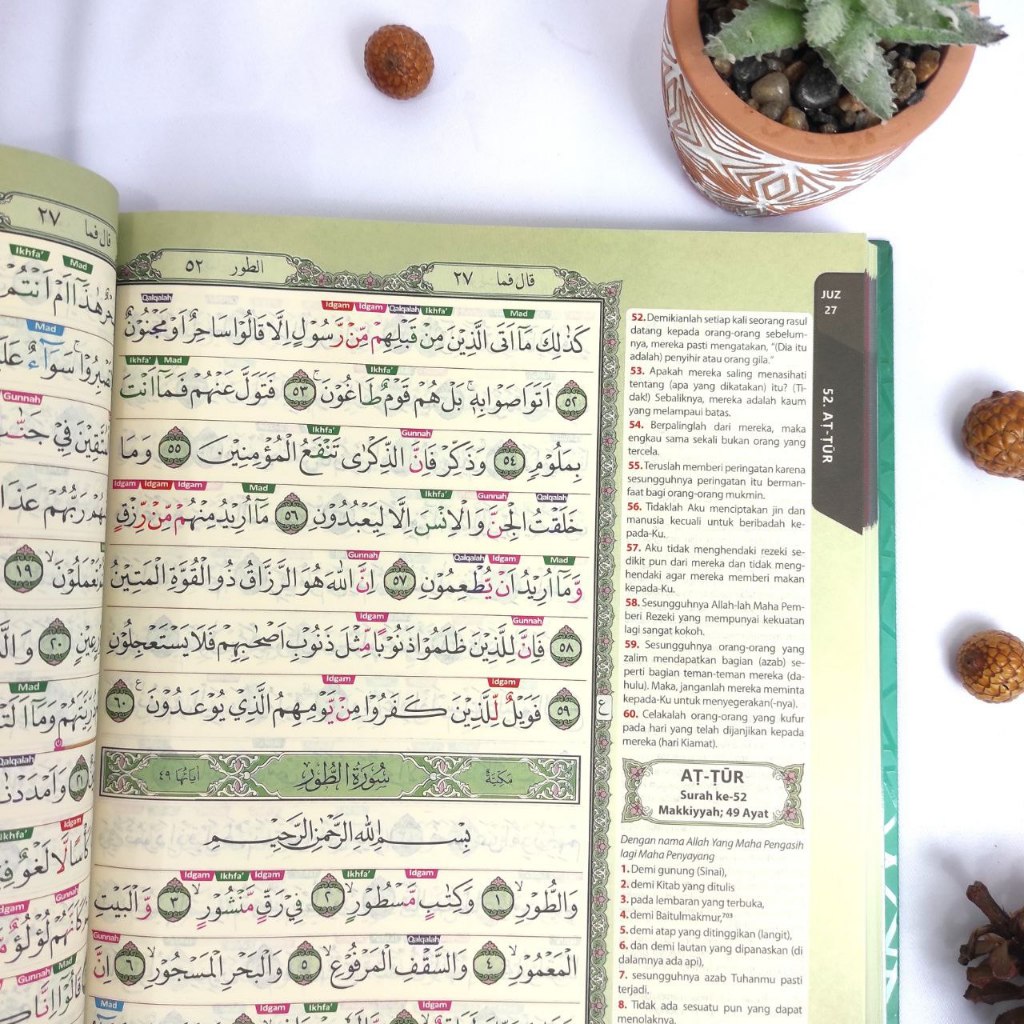 قال فما ٢٧
الطور ٥٢
Qalqalah Idgam Idgam Qalqalah Ikhfa' Mad
كَذٰلِكَ مَآ اَتَى الَّذِيْنَ مِنْ قَبْلِهِمْ مِّنْ رَّسُوْلٍ اِلَّا قَالُوْا سَاحِرٌ اَوْ مَجْنُوْنٌ
Ikhfa' Mad Ikhfa'
٥٢ اَتَوَاصَوْا بِهٖۚ بَلْ هُمْ قَوْمٌ طَاغُوْنَ ٥٣ فَتَوَلَّ عَنْهُمْ فَمَآ اَنْتَ
Ikhfa' Gunnah
بِمَلُوْمٍ ٥٤ وَذَكِّرْ فَاِنَّ الذِّكْرٰى تَنْفَعُ الْمُؤْمِنِيْنَ ٥٥ وَمَا
Idgam Idgam Idgam Mad Ikhfa' Gunnah Qalqalah
خَلَقْتُ الْجِنَّ وَالْاِنْسَ اِلَّا لِيَعْبُدُوْنِ ٥٦ مَآ اُرِيْدُ مِنْهُمْ مِّنْ رِّزْقٍ
Gunnah Qalqalah Idgam Mad
وَّمَآ اُرِيْدُ اَنْ يُّطْعِمُوْنِ ٥٧ اِنَّ اللّٰهَ هُوَ الرَّزَّاقُ ذُو الْقُوَّةِ الْمَتِيْنُ
Idgam Gunnah
٥٨ فَاِنَّ لِلَّذِيْنَ ظَلَمُوْا ذَنُوْبًا مِّثْلَ ذَنُوْبِ اَصْحٰبِهِمْ فَلَا يَسْتَعْجِلُوْنِ
Idgam Idgam
٥٩ فَوَيْلٌ لِّلَّذِيْنَ كَفَرُوْا مِنْ يَّوْمِهِمُ الَّذِيْ يُوْعَدُوْنَ ࣖ ٦٠
ع
مكيّة سُوْرَةُ الطُّوْرِ اٰياتها ٤٩
بِسْمِ اللّٰهِ الرَّحْمٰنِ الرَّحِيْمِ
Idgam Ikhfa' Idgam Ikhfa' Idgam
وَالطُّوْرِۙ ١ وَكِتٰبٍ مَّسْطُوْرٍۙ ٢ فِيْ رَقٍّ مَّنْشُوْرٍۙ ٣ وَّالْبَيْتِ
Gunnah Qalqalah
الْمَعْمُوْرِۙ ٤ وَالسَّقْفِ الْمَرْفُوْعِۙ ٥ وَالْبَحْرِ الْمَسْجُوْرِۙ ٦ اِنَّ
Mad Idgam Ikhfa' Idgam
52. Demikianlah setiap kali seorang rasul
datang kepada orang-orang sebelum-
nya, mereka pasti mengatakan, "(Dia itu
adalah) penyihir atau orang gila."
53. Apakah mereka saling menasihati
tentang (apa yang dikatakan) itu? (Ti-
dak!) Sebaliknya, mereka adalah kaum
yang melampaui batas.
54. Berpalinglah dari mereka, maka
engkau sama sekali bukan orang yang
tercela.
55. Teruslah memberi peringatan karena
sesungguhnya peringatan itu berman-
faat bagi orang-orang mukmin.
56. Tidaklah Aku menciptakan jin dan
manusia kecuali untuk beribadah ke-
pada-Ku.
57. Aku tidak menghendaki rezeki se-
dikit pun dari mereka dan tidak meng-
hendaki agar mereka memberi makan
kepada-Ku.
58. Sesungguhnya Allah-lah Maha Pem-
beri Rezeki yang mempunyai kekuatan
lagi sangat kokoh.
59. Sesungguhnya orang-orang yang
zalim mendapatkan bagian (azab) se-
perti bagian teman-teman mereka (da-
hulu). Maka, janganlah mereka meminta
kepada-Ku untuk menyegerakan(-nya).
60. Celakalah orang-orang yang kufur
pada hari yang telah dijanjikan kepada
mereka (hari Kiamat).
AṬ-ṬŪR
Surah ke-52
Makkiyyah; 49 Ayat
Dengan nama Allah Yang Maha Pengasih
lagi Maha Penyayang
1. Demi gunung (Sinai),
2. demi Kitab yang ditulis
3. pada lembaran yang terbuka,
4. demi Baitulmakmur,703
5. demi atap yang ditinggikan (langit),
6. dan demi lautan yang dipanaskan (di
dalamnya ada api),
7. sesungguhnya azab Tuhanmu pasti
terjadi.
8. Tidak ada sesuatu pun yang dapat
menolaknya.
JUZ
27
52. AṬ-ṬŪR
قال فما ٢٧
Ikhfa' Mad
اَمْ اَنْتُمْ
Mad
سَوَاۤءٌ
Gunnah
فِيْ
رَبُّهُمْ
١٩
٢٠
Mad
Qalqalah
٢١ وَاَمْدَدْنٰ
Ikhfa' Idgam
لَغْوٌ
Idgam Gunnah
لُؤْلُؤٌ
Gunnah Mad
قَالُوْٓا اِنَّا
Mad